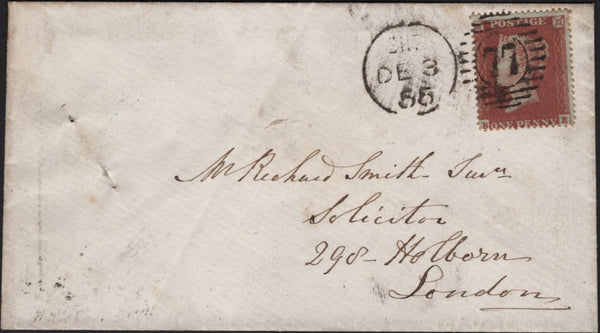 POSTAGE
DE 3
55
77
ONE PENNY
Mr Richard Smith Junr
Solicitor
298 - Holborn
London